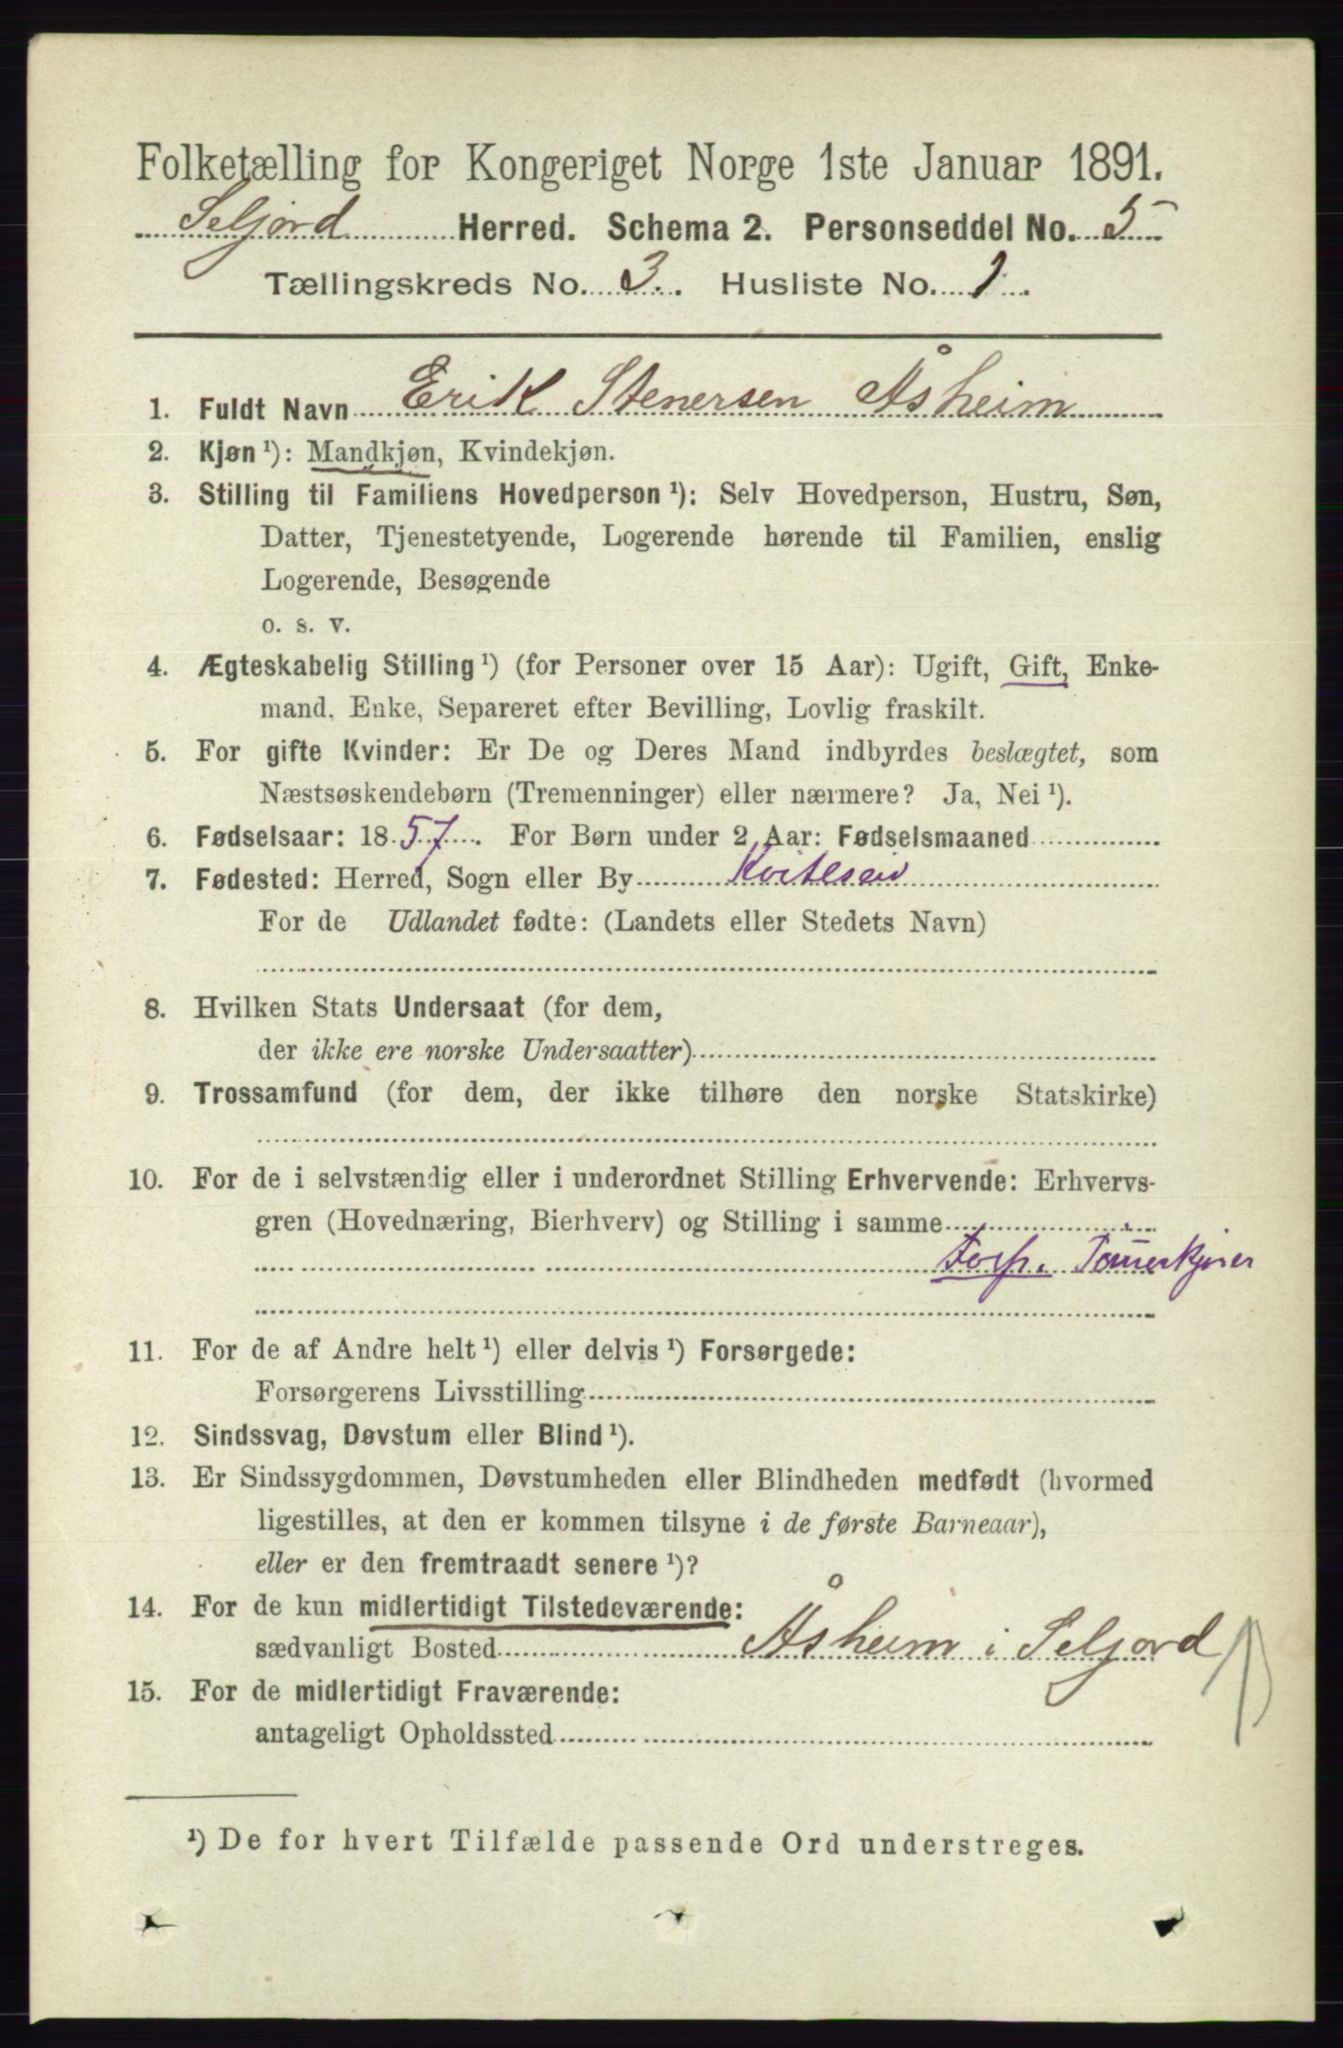 Folketælling for Kongeriget Norge 1ste Januar 1891.
Seljord Herred. Schema 2. Personseddel No. 5
Tællingskreds No. 3. Husliste No. 1.
1. Fuldt Navn Erik Stenersen Åsheim
2. Kjøn ¹): Mandkjøn, Kvindekjøn.
3. Stilling til Familiens Hovedperson ¹): Selv Hovedperson, Hustru, Søn,
Datter, Tjenestetyende, Logerende hørende til Familien, enslig
Logerende, Besøgende
o. s. v.
4. Ægteskabelig Stilling ¹) (for Personer over 15 Aar): Ugift, Gift, Enke-
mand, Enke, Separeret efter Bevilling, Lovlig fraskilt.
5. For gifte Kvinder: Er De og Deres Mand indbyrdes beslægtet, som
Næstsøskendebørn (Tremenninger) eller nærmere? Ja, Nei ¹).
6. Fødselsaar: 1857. For Børn under 2 Aar: Fødselsmaaned
7. Fødested: Herred, Sogn eller By Kviteseid
For de Udlandet fødte: (Landets eller Stedets Navn)
8. Hvilken Stats Undersaat (for dem,
der ikke ere norske Undersaatter)
9. Trossamfund (for dem, der ikke tilhøre den norske Statskirke)
10. For de i selvstændig eller i underordnet Stilling Erhvervende: Erhvervs-
gren (Hovednæring, Bierhverv) og Stilling i samme
Forp. Tømerkjører
11. For de af Andre helt ¹) eller delvis ¹) Forsørgede:
Forsørgerens Livsstilling
12. Sindssvag, Døvstum eller Blind ¹).
13. Er Sindssygdommen, Døvstumheden eller Blindheden medfødt (hvormed
ligestilles, at den er kommen tilsyne i de første Barneaar),
eller er den fremtraadt senere ¹)?
14. For de kun midlertidigt Tilstedeværende:
sædvanligt Bosted Åsheim i Seljord
15. For de midlertidigt Fraværende:
antageligt Opholdssted
¹) De for hvert Tilfælde passende Ord understreges.